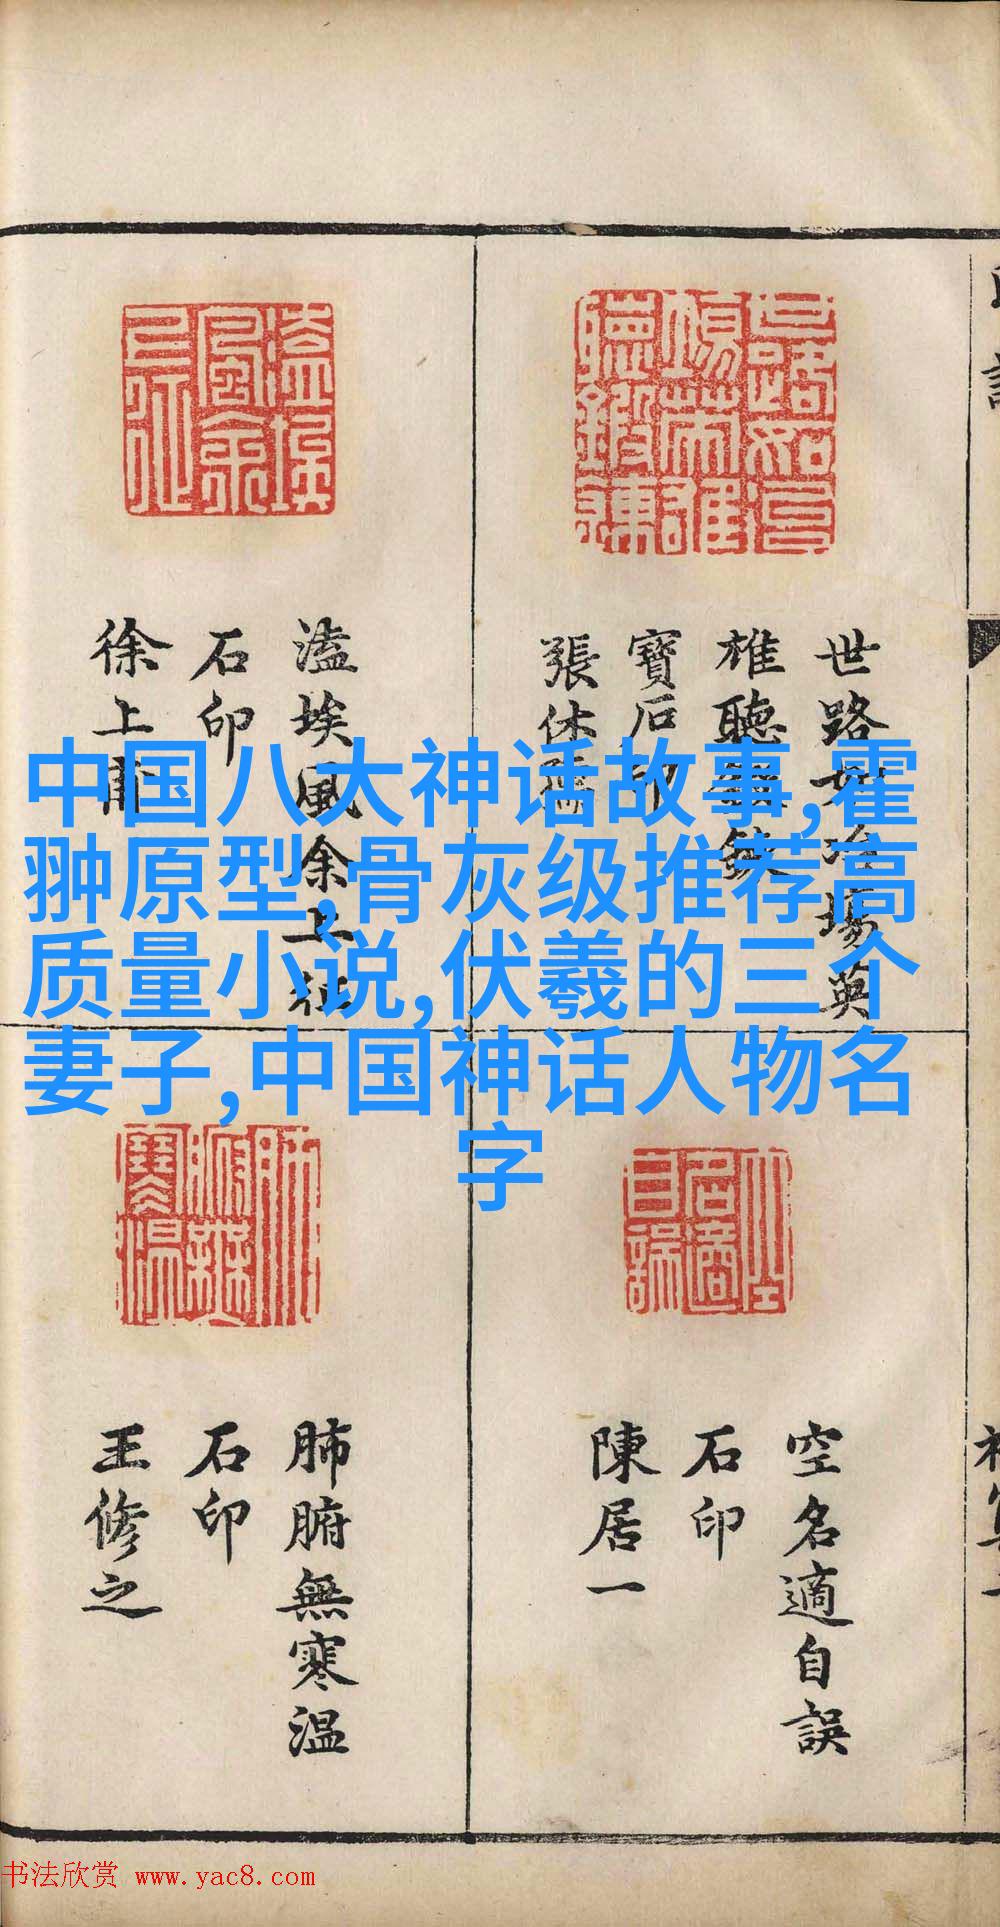 中国八大神话故事,霍
翀原型,骨灰级推荐高
质量小说,伏羲的三个
妻子,中国神话人物名
字
世路如冶場英
雄聽
寶石印
張休
溘埃風余上征
石印
徐上甫
空名適自誤
石印
陳居一
肺腑無寒温
石印
王修之
书法欣赏 www.yac8.com